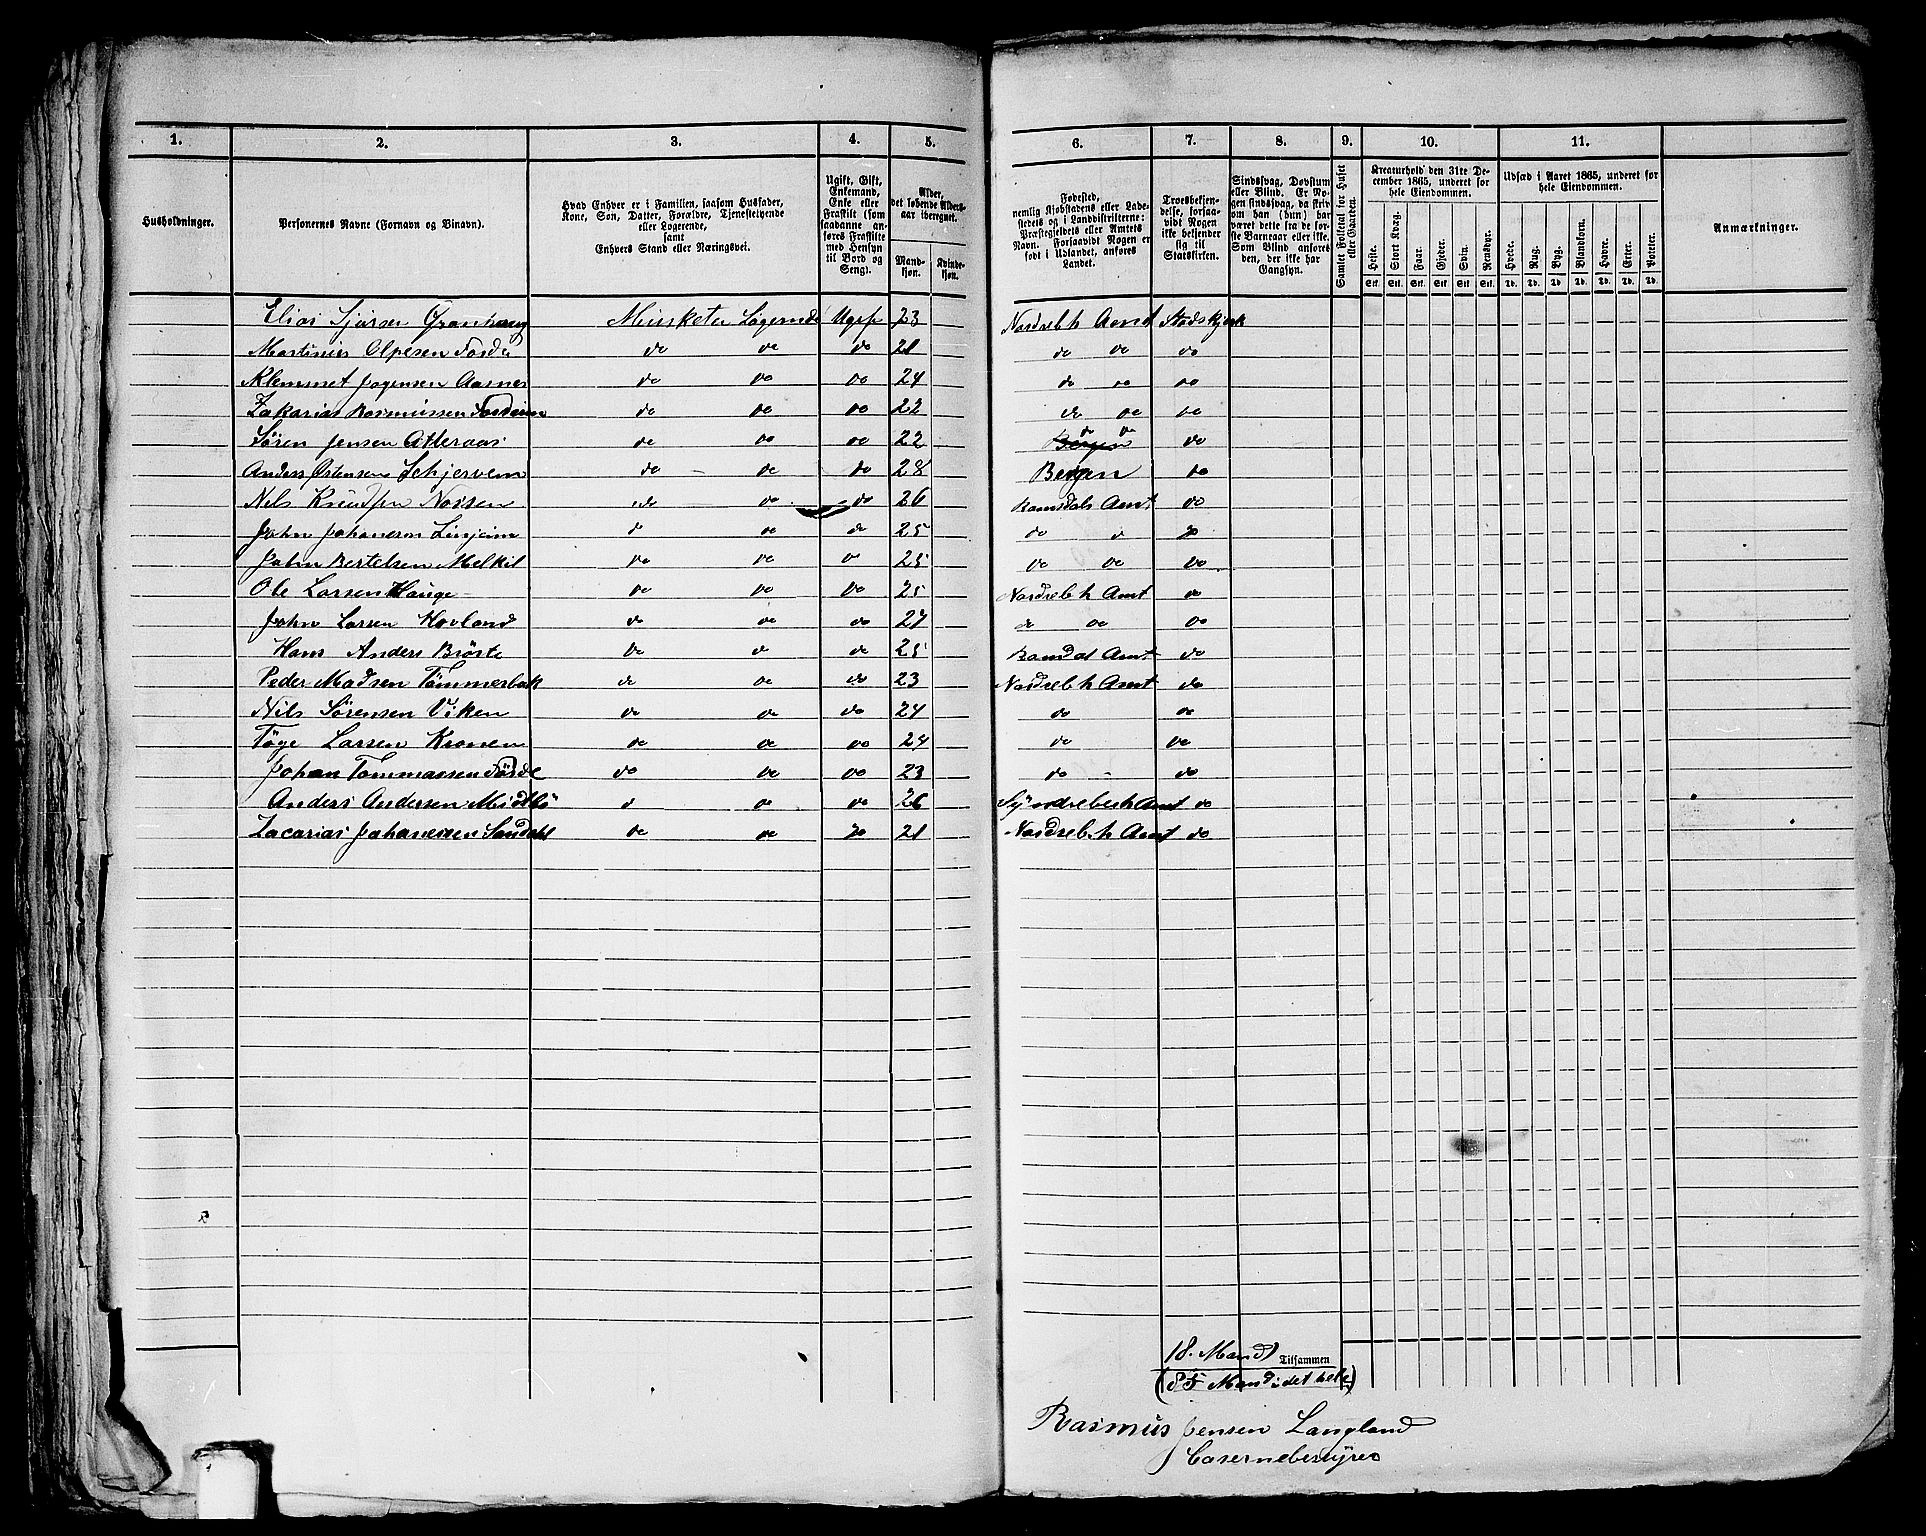 1. 2. 3. 4. 5. 6. 7. 8. 9. 10. 11.
Husholdninger.
Personernes Navne (Fornavn og Binavn).
Hvad Enhver er i Familien, saasom Husfader,
Kone, Søn, Datter, Forældre, Tjenestetyende
eller Logerende,
samt
Enhvers Stand eller Næringsvei.
Ugift, Gift,
Enkemand,
Enke eller
Fraskilt (som
saadanne an-
føres Fraskilte
med Hensyn
til Bord og
Seng).
Alder,
det løbende Alders-
aar iberegnet.
Mand-
kjøn.
Kvinde-
kjøn.
Fødested,
nemlig Kjøbstadens eller Lade-
stedets og i Landdistrikterne:
Præstegjeldets eller Amtets
Navn. Forsaavidt Nogen er
født i Udlandet, anføres
Landet.
Troesbekjen-
delse, forsaa-
vidt Nogen
ikke bekjender
sig til
Statskirken.
Sindssvag, Døvstum
eller Blind. Er No-
gen sindssvag, da skriv
om han (hun) har
været dette fra de før-
ste Barneaar eller ikke.
Som Blind anføres
den, der ikke har
Gangsyn.
Samlet Folketal for Huset
eller Gaarden.
Kreaturhold den 31te De-
cember 1865, underet for
hele Eiendommen.
Heste. Stort Kvæg. Faar. Gjeder. Svin. Rensdyr.
Stk. Stk. Stk. Stk. Stk. Stk.
Udsæd i Aaret 1865, underet for
hele Eiendommen.
Hvede. Rug. Byg. Blandkorn. Havre. Erter. Poteter.
Td. Td. Td. Td. Td. Td. Td.
Anmærkninger.
Elias Sjursen Musketer Logerende Ugift 23 Nordrebh Amt Stadskjerk
Martinus Olpesen Förde do do do 21 do do do
Klemmet Jogensen Aarnes do do do 24 do do do
Zakarias Rasmussen do do do 22 do do do
Sören Jensen Atteraas do do do 22 Bergen do do do
Anders Örtensen Schjervem do do do 28 Bergen do
Nils Knudsen Noisen do do do 26 Romsdals Amt do
John Johanesen Linjeim do do do 25 do do do
John Bertelsen Melkil do do do 25 do do do
Ole Larsen Hauge do do do 25 Nordrebh Amt do
John Larsen Hovland do do do 27 do do do
Hans Anders Bröste do do do 25 Romdal Amt do
Peder Madsen Tömmerbak do do do 23 Nordrebh Amt do
Nils Sörensen Viken do do do 24 do do
Töge Larsen Kronen do do do 24 do do
Johan Tommassen Förde do do do 23 do do
Anders Andersen Midtbö do do do 26 Syndrebergh Amt do
Zacarias Johanessen Sandahl do do do 21 Nordreb.h Amt do
18. Mand Tilsammen
(85 Mand i det hele)
Rasmus Jensen Langland
Casernebestyrer